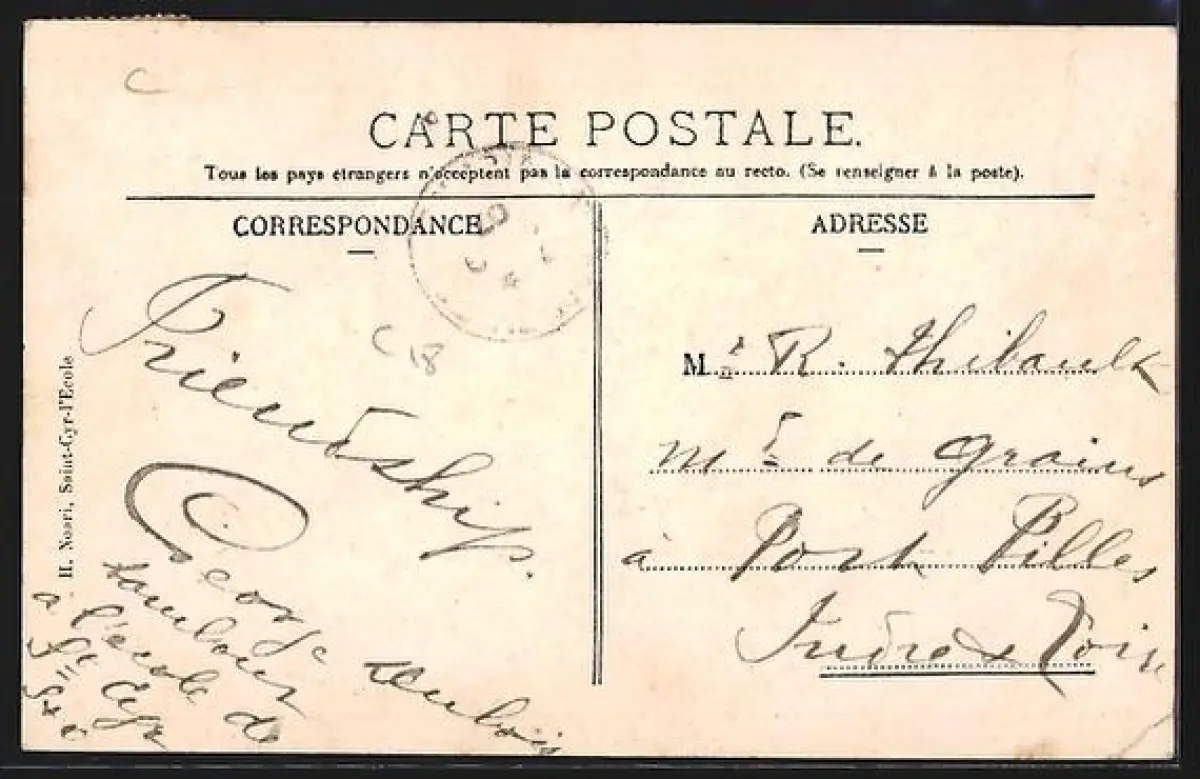 CARTE POSTALE.
Tous les pays étrangers n'acceptent pas la correspondance au recto. (Se renseigner à la poste).
CORRESPONDANCE
Friendship.
George
tambour
à l'école de
St Cyr
S et O
H. Noari, Saint-Cyr-l'Ecole
ADRESSE
Mr R. Thibault
Md de Grains
à Port de Pilles
Indre & Loire